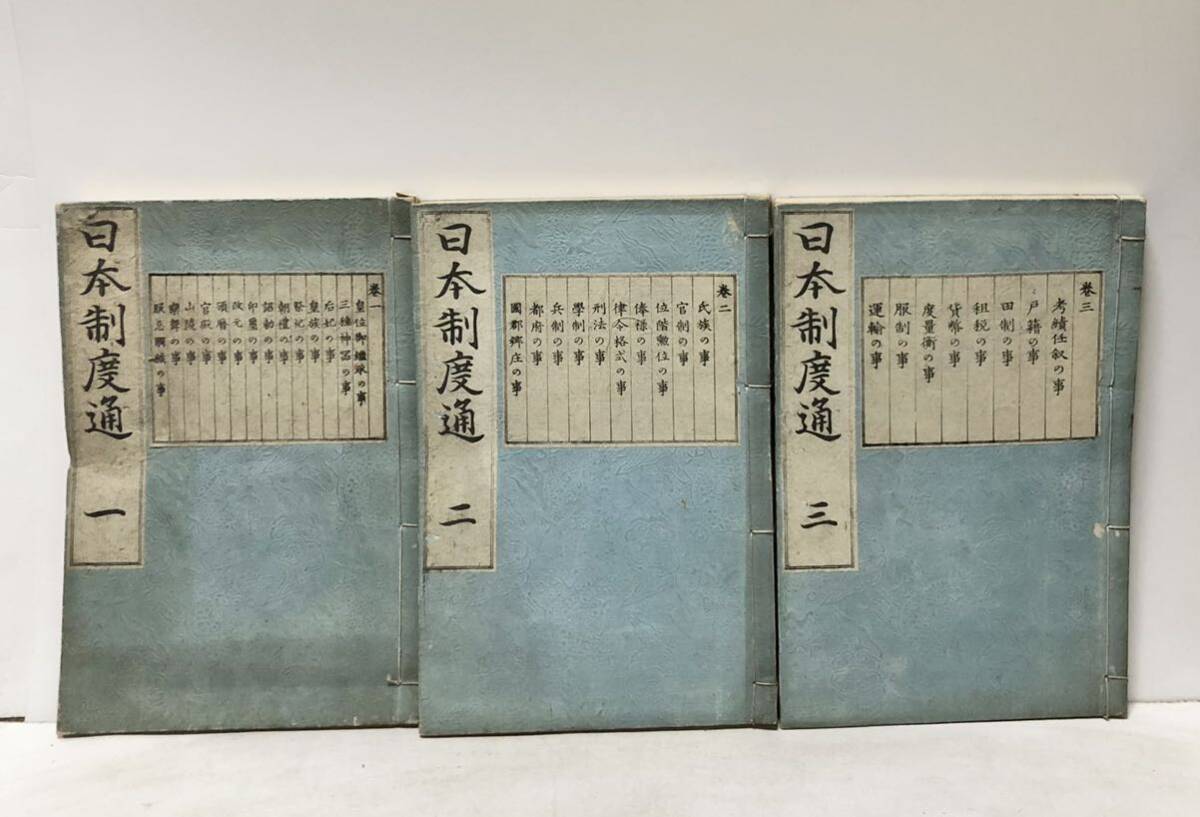 日本制度通 一
卷一
皇位御繼承の事
三種神器の事
后妃の事
皇族の事
祭祀の事
朝禮の事
詔勅の事
印璽の事
改元の事
頒曆の事
宮殿の事
山陵の事
樂舞の事
服忌
日本制度通 二
卷二
氏族の事
官制の事
位階勳位の事
俸祿の事
律令格式の事
刑法の事
學制の事
兵制の事
都府の事
國郡鄕庄の事
日本制度通 三
卷三
考績任叙の事
戸籍の事
田制の事
租税の事
貨幣の事
度量衡の事
服制の事
運輸の事